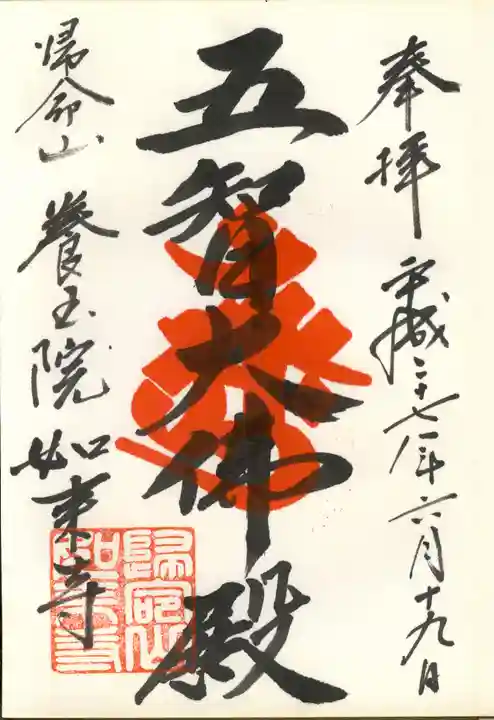 奉拝 平成二十七年六月十九日
五智大佛殿
帰命山 養玉院 如来寺
歸命山
如来寺